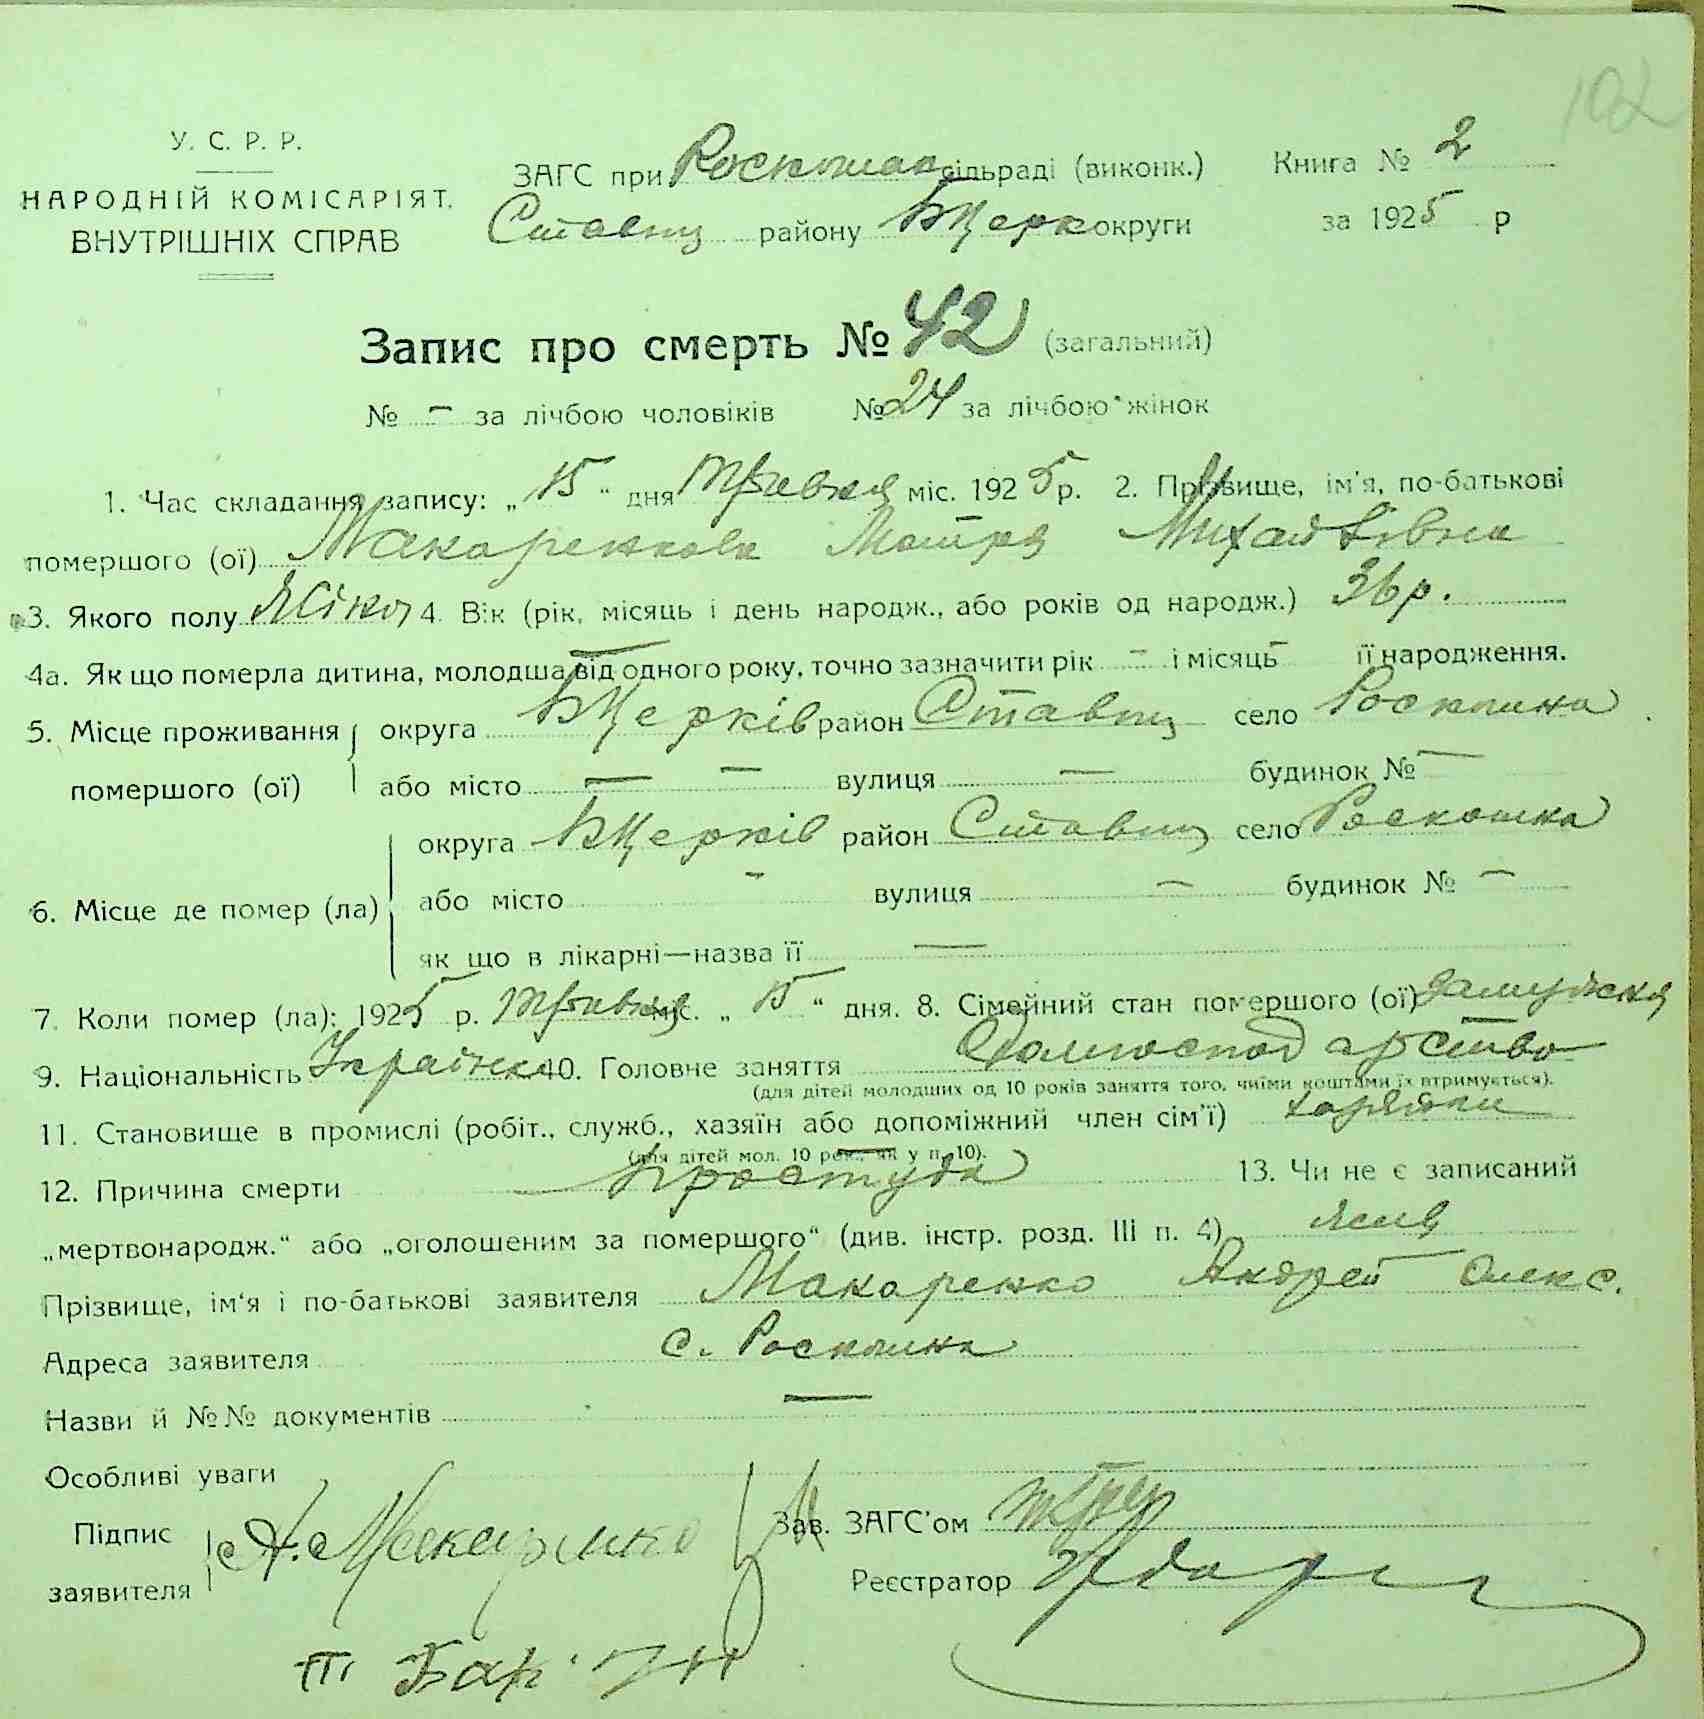 102
У. С. Р. Р.
НАРОДНІЙ КОМІСАРІЯТ.
ВНУТРІШНІХ СПРАВ
ЗАГС при Роскошан сільраді (виконк.) Книга № 2
Ставищ району БЦерк округи за 1925 р
Запис про смерть № 42 (загальний)
№ — за лічбою чоловіків № 24 за лічбою жінок
1. Час складання запису: „ 15 “ дня Травня міс. 1925 р. 2. Прізвище, ім'я, по-батькові
помершого (ої) Макаренкова Мотря Михайлівна
3. Якого полу Жіноч 4. Вік (рік, місяць і день народж., або років од народж.) 36 р.
4а. Як що померла дитина, молодша від одного року, точно зазначити рік — і місяць — її народження.
5. Місце проживання округа БЦерків район Ставищ село Роскошна
помершого (ої) або місто — — вулиця — будинок № —
округа БЦерків район Ставищ село Роскошна
6. Місце де помер (ла) або місто — вулиця — будинок № —
як що в лікарні—назва її —
7. Коли помер (ла): 1925 р. Травня міс. „ 15 “ дня. 8. Сімейний стан помершого (ої) Замужня
9. Національність Українка 10. Головне заняття
(для дітей молодших од 10 років заняття того, чиїми коштами їх втримується).
11. Становище в промислі (робіт., служб., хазяїн або допоміжний член сім'ї)
(для дітей мол. 10 рок., як у п. 10).
12. Причина смерти простуда 13. Чи не є записаний
„мертвонародж.“ або „оголошеним за помершого“ (див. інстр. розд. III п. 4)
Прізвище, ім'я і по-батькові заявителя Макаренко Андрей Олекс.
Адреса заявителя с. Роскошна
Назви й №№ документів —
Особливі уваги
Підпис А. Макаренко Зав. ЗАГС'ом
заявителя Реєстратор